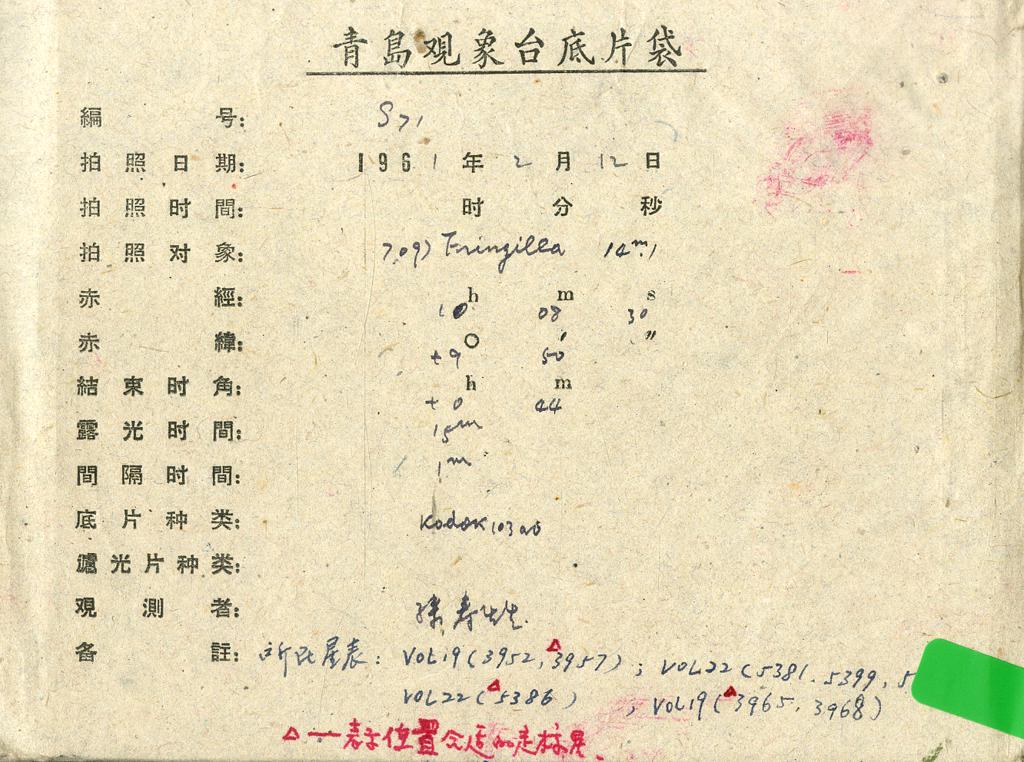 青島观象台底片袋
編号: S71
拍照日期: 1961年2月12日
拍照时間: 时 分 秒
拍照对象: 709) Fringilla 14m.1
赤經: 10h 08m 30s
赤緯: +9° 50′ ″
結束时角: +0h 44m
露光时間: 15m
間隔时間: 1m
底片种类: Kodak 103a0
濾光片种类:
观測者: 孫寿
备註: 所比星表: VOL19(3952, △3957); VOL22(5381. 5399, 5
VOL22(△5386); VOL19(△3965, 3968)
△——表示位置合适的是